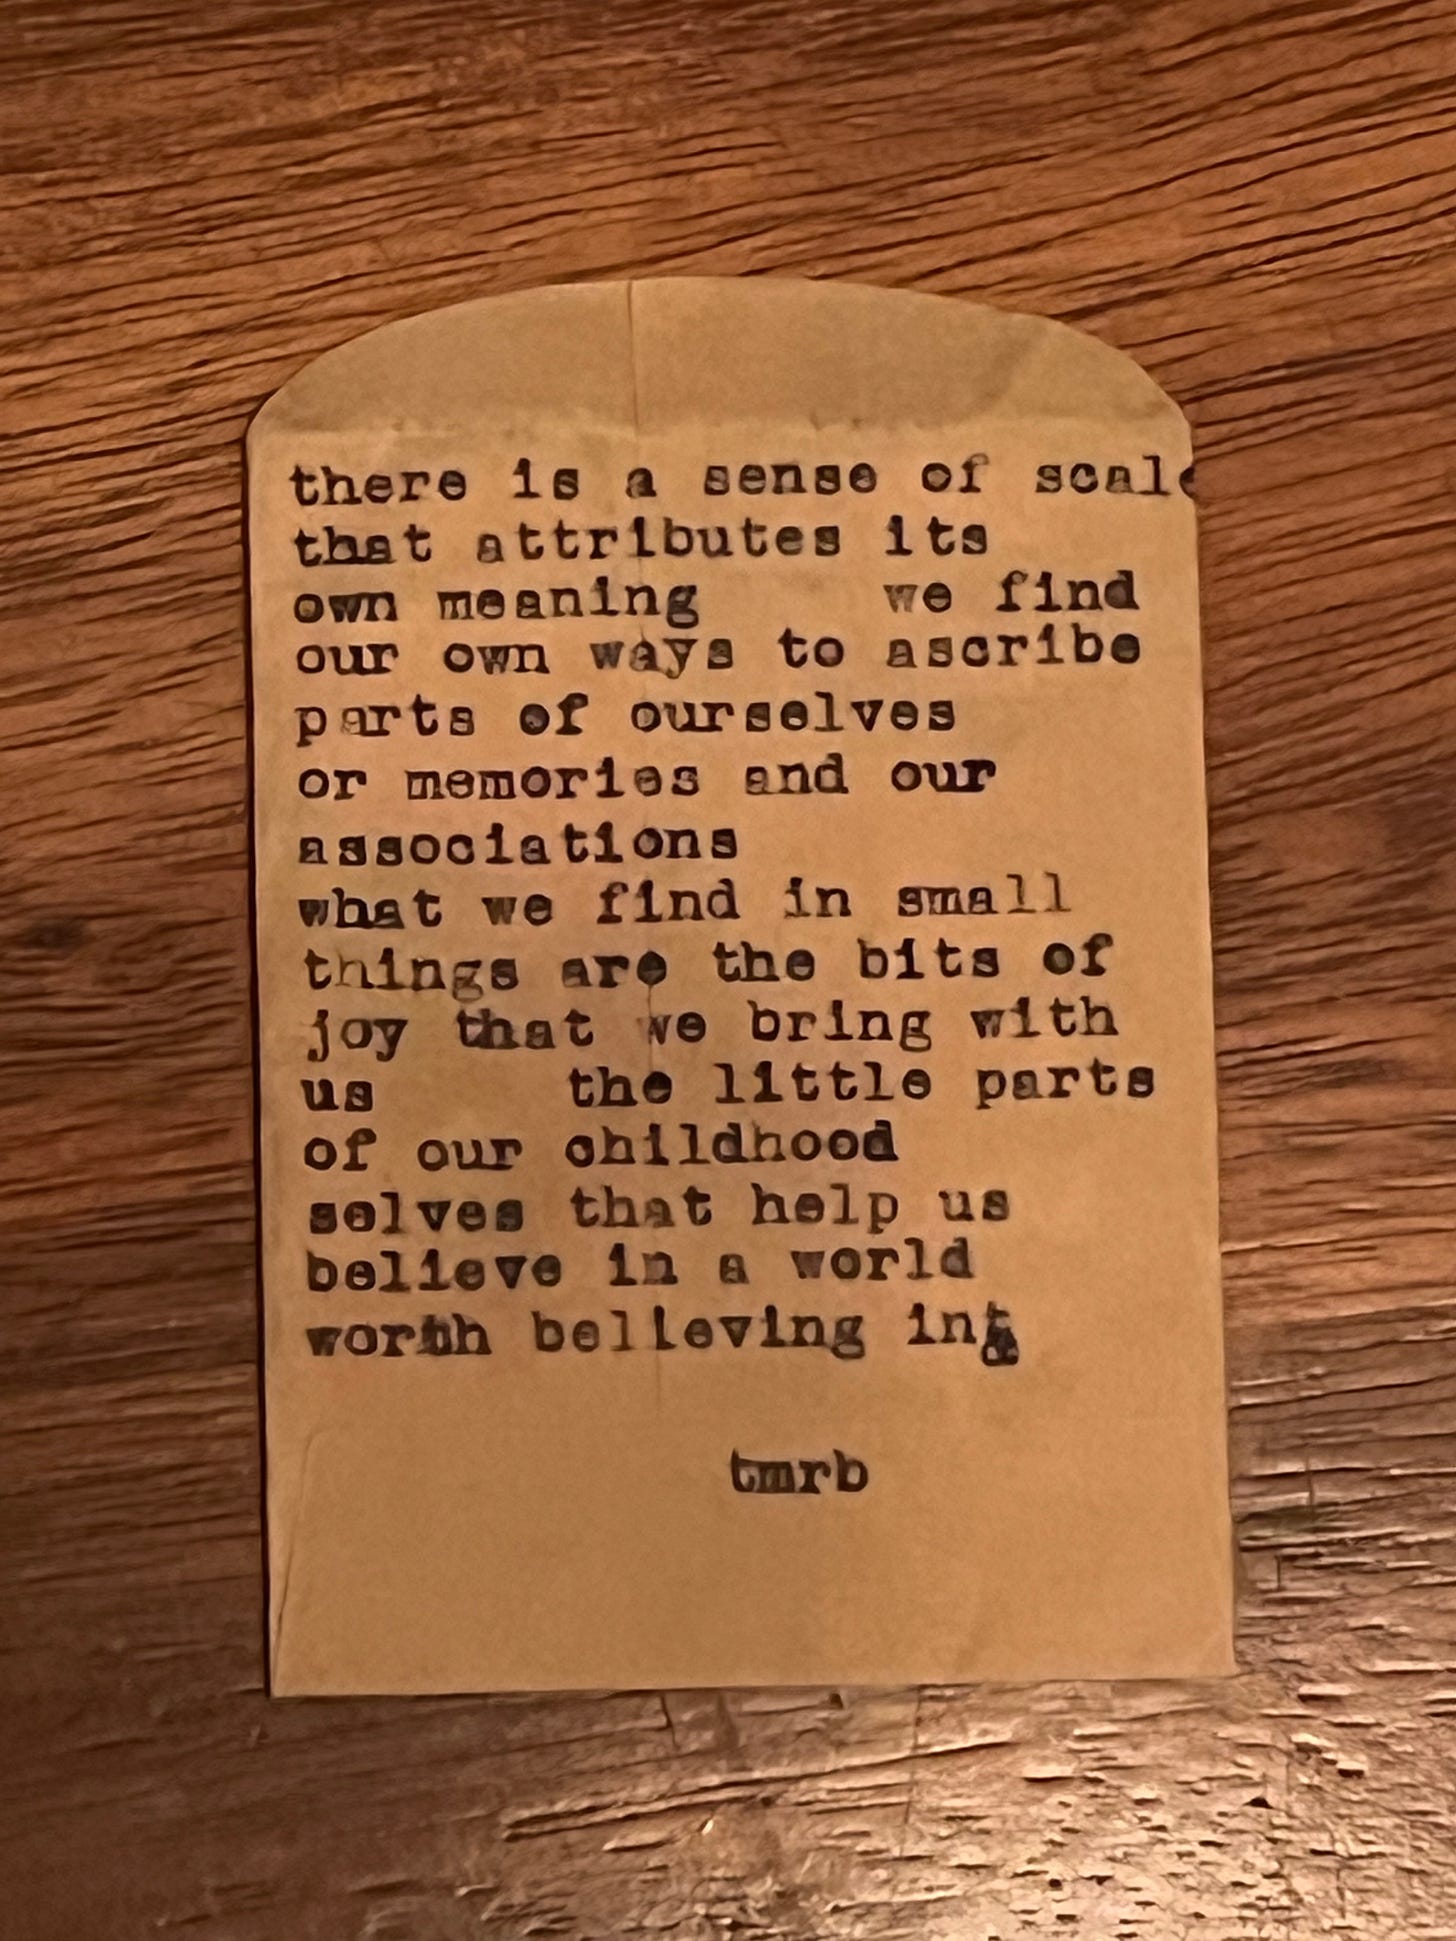 there is a sense of scale
that attributes its
own meaning     we find
our own ways to ascribe
parts of ourselves
or memories and our
associations
what we find in small
things are the bits of
joy that we bring with
us     the little parts
of our childhood
selves that help us
believe in a world
worth believing in
tmrb